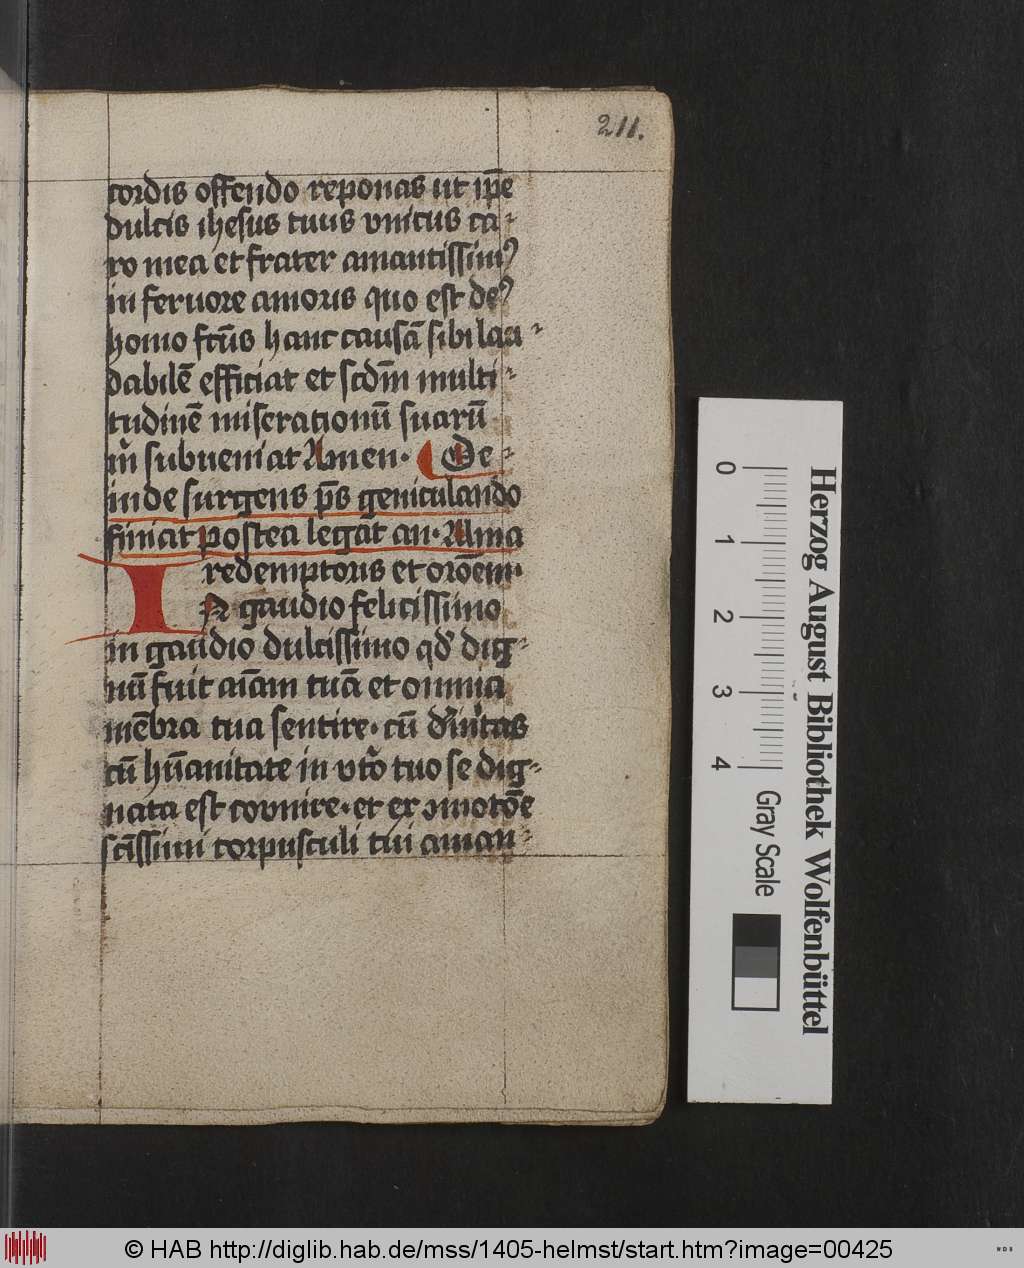 211.
cordis offendo reponas ut ip̄e
dulcis ihesus tuus vnicus ca-
ro mea et frater amantissimꝰ
in feruore amoris quo est deꝰ
homo fc̄us hanc causā sibi lau-
dabilē efficiat et scd̄m multi-
tudinē miserationū suarū
m̄ subueniat Amen. De-
inde surgens p̄s geniculando
finiat postea legat an. Alma
redemptoris et orōem.
IN gaudio felicissimo
in gaudio dulcissimo qd̄ dig-
nū fuit aīam tuā et omnia
mēbra tua sentire. cū diuītas
cū hūanitate in vt̄o tuo se dig-
nata est cōunire. et ex ꝯmotōe
sc̄issimi corpusculi tui aman-
Herzog August Bibliothek Wolfenbüttel
0 1 2 3 4
Gray Scale
© HAB http://diglib.hab.de/mss/1405-helmst/start.htm?image=00425